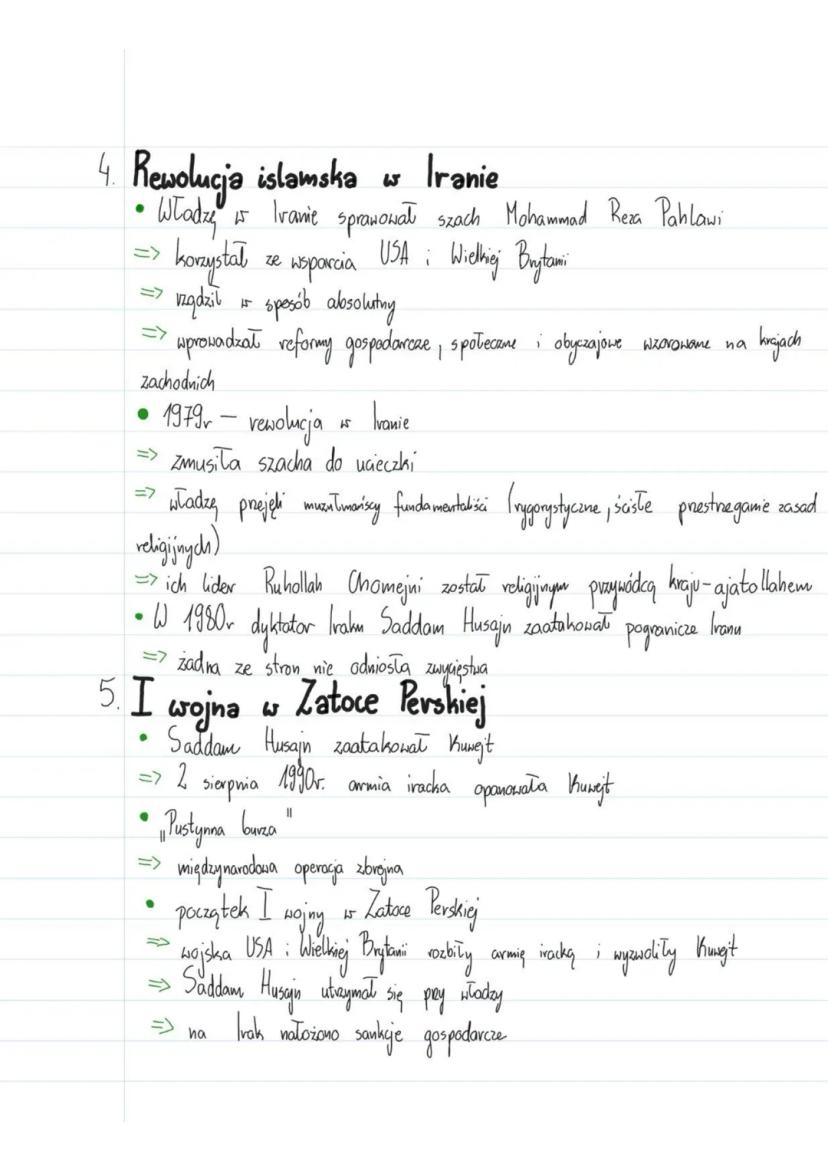 4. Rewolucja islamska w Iranie
• Władzę w Iranie sprawował szach Mohammad Reza Pahlawi
=> korzystał ze wsparcia USA i Wielkiej Brytanii
=> rządził w sposób absolutny
=> wprowadzał reformy gospodarcze, społeczne i obyczajowe wzorowane na krajach
zachodnich
• 1979r – rewolucja w Iranie
=> zmusiła szacha do ucieczki
=> władzę przejęli muzułmańscy fundamentaliści (rygorystyczne, ściśle przestrzeganie zasad
religijnych)
=> ich lider Ruhollah Chomejni został religijnym przywódcą kraju-ajatollahem
• W 1980r dyktator Iraku Saddam Husajn zaatakował pogranicze Iranu
=> żadna ze stron nie odniosła zwycięstwa
5. I wojna w Zatoce Perskiej
• Saddam Husajn zaatakował Kuwejt
=> 2 sierpnia 1990r. armia iracka opanowała Kuwejt
• „Pustynna burza"
=> międzynarodowa operacja zbrojna
• początek I wojny w Zatoce Perskiej
=> wojska USA i Wielkiej Brytanii rozbiły armię iracką i wyzwoliły Kuwejt
=> Saddam Husajn utrzymał się przy władzy
=> na Irak nałożono sankcje gospodarcze